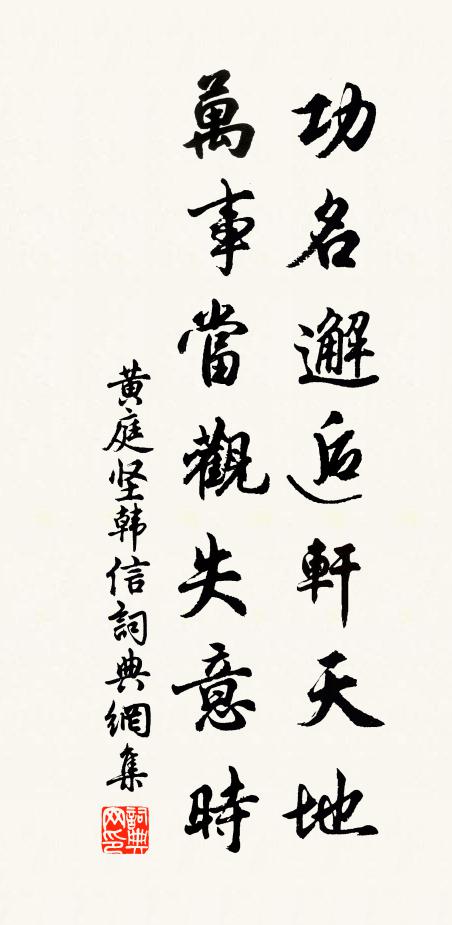 功名邂逅軒天地
萬事當觀失意時
黄庭坚韩信詞典網集
詞典網印